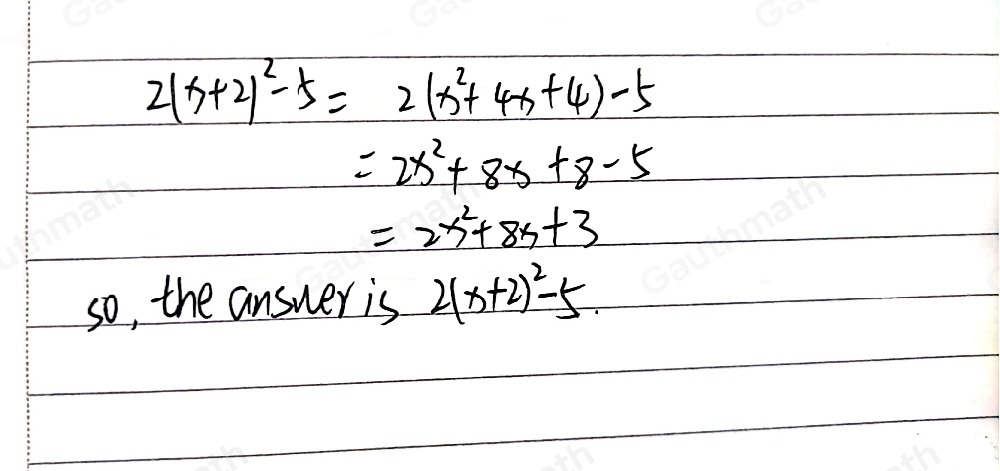 2(x+2)²-5 = 2(x²+4x+4)-5
= 2x²+8x+8-5
= 2x²+8x+3
so, the answer is 2(x+2)²-5.
Gauthmath
Gauthmath
Gauthmath